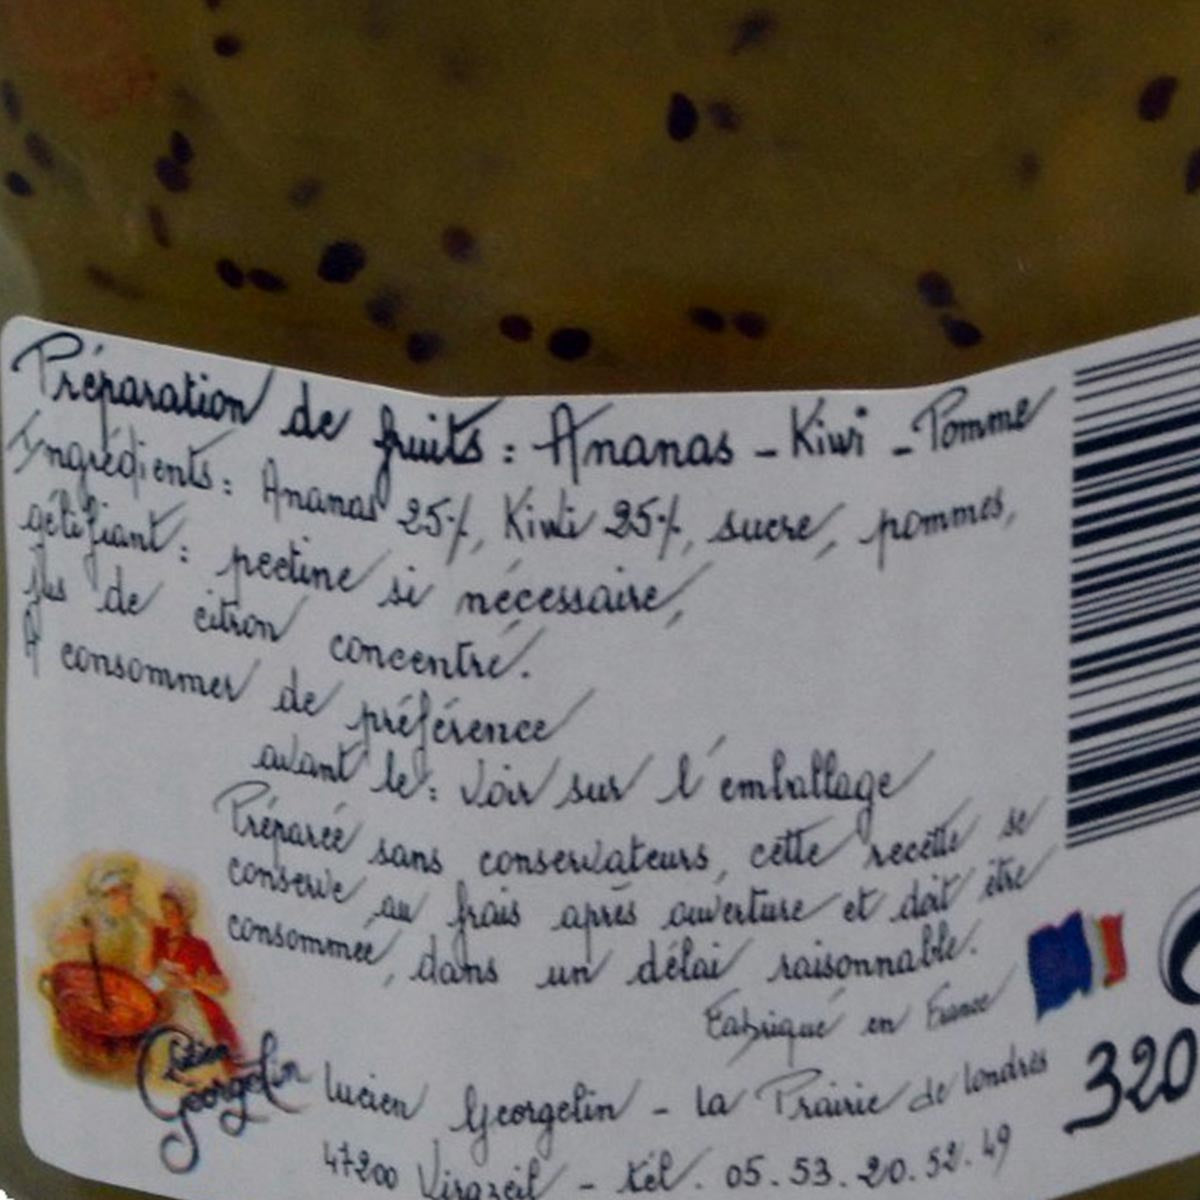 Préparation de fruits : Ananas - Kiwi - Pomme
Ingrédients : Ananas 25%, Kiwi 25%, sucre, pommes,
gélifiant : pectine si nécessaire,
jus de citron concentré.
A consommer de préférence
avant le : Voir sur l'emballage
Préparée sans conservateurs, cette recette se
conserve au frais après ouverture et doit être
consommée, dans un délai raisonnable.
Fabriqué en France
320
Lucien Georgelin
Lucien Georgelin - La Prairie de Londres
47200 Virazeil - tél. 05.53.20.52.49